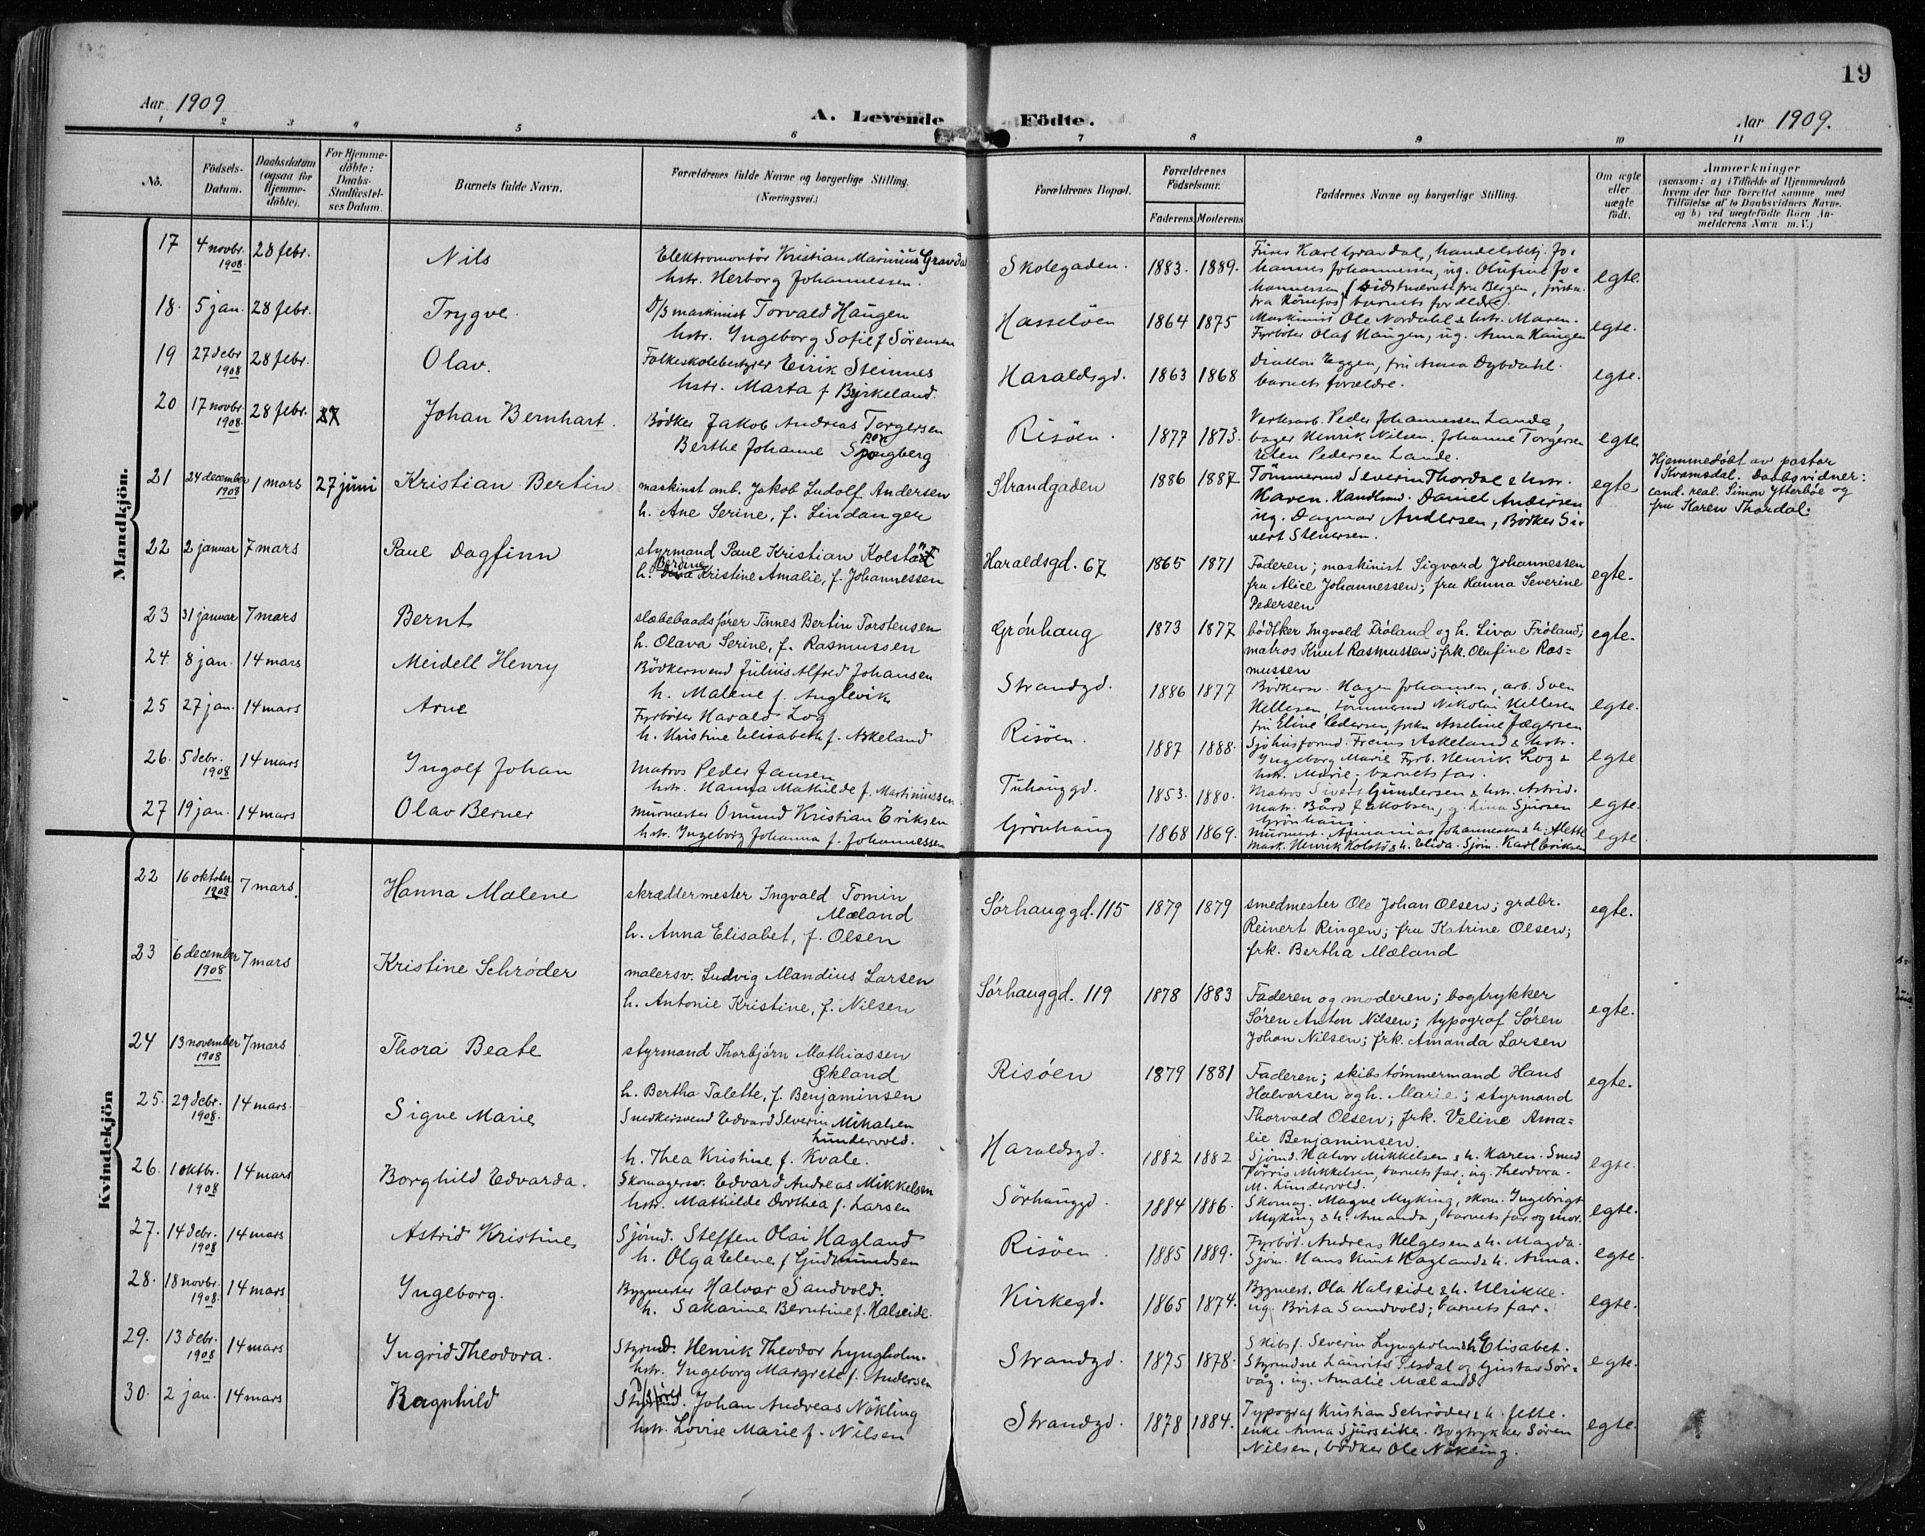 19
Aar 1909
A. Levende Födte.
Aar 1909.
1 2 3 4 5 6 7 8 9 10 11
No.
Födsels-Datum.
Daabsdatum (ogsaa for Hjemmedöbte).
For Hjemmedöbte: Daabs-Stadfæstelses Datum.
Barnets fulde Navn.
Forældrenes fulde Navne og borgerlige Stilling.
(Næringsvei.)
Forældrenes Bopæl.
Forældrenes Födselsaar.
Faderens. Moderens
Faddernes Navne og borgerlige Stilling.
Om ægte eller uægte födt.
Anmærkninger
(saasom: a) i Tilfælde af Hjemmedaab hvem der har forrettet samme, med Tilföielse af to Daabsvidners Navne, og b) ved uægtefödte Börn Anmelderens Navn m. V.)
Mandkjön.
17 4 novbr. 1908 28 febr. Nils
Elektromontör Kristian Marinius Gravdal
hstr. Herborg Johannessen.
Skolegaden. 1883. 1889.
egte.
18. 5 jan. 28 febr. Trygve.
D/S maskinist Torvald Haugen
hstr. Ingeborg Sofie f Sörensen
Hasseløen 1864 1875
Maskinist Ole Nordahl & hstr. Maren.
Fyrböter Olaf Haugen, ug. Anna Haugen
egte.
19 27 debr. 1908 28 febr. Olav.
Folkeskolebestyrer Eirik Steinnes
hstr. Marta f Byrkeland.
Haraldsgd. 1863 1868
Eggen, fru Anna Dybdahl.
barnets forældre.
egte.
20 17 novbr. 1908 28 febr. 27 Johan Bernhart.
Bödker Jakob Andreas Torgersen
Berthe Johanne
Risöen. 1877 1873.
Verksarb. Peder Johannessen Lande,
bager Henrik Nilsen. Johanne Torgersen
Elen Pedersen Lande.
egte
21 24 december 1908 1 mars 27 juni Kristian Bertin
maskinst. amb. Jakob Ludolf Andersen
h. Ane Serine, f. Lindanger
Strandgaden 1886 1887
Tömmermd Severin Thordal & hstr.
Karen. Handlsmd. Daniel Andersen
ug. Dagmar Andersen, Bödker Si-
vert Stenersen.
egte
Hjemmedöbt av pastor
Kvamsdal. Daabsvidner:
cand. real. Simon Ytterböe og
fru Karen Thordal.
22 2 januar 7 mars Paul Dagfinn
styrmand Paul Kristian Kolstö
h. Berdine Kristine Amalie, f. Johannessen
Haraldsgd. 67 1865 1871
Faderen; maskinist Sigvard Johannessen
fru Alice Johannessen; fru Hanna Severine
Pedersen
egte.
23 31 januar 7 mars Bernt
slæbebaadsfører Tønnes Bertin Torstensen
h. Olava Serine, f. Rasmussen
Grönhaug 1873 1877
bödtker Ingvald Fröland og h. Liva Fröland;
matros Knut Rasmussen; frk. Olufine Ras=
mussen
egte.
24. 8 jan. 14 mars Meidell Henry
Bödkersvend Julius Alfred Johansen
h. Malene f. Anglevik
Strandgd. 1886 1877
Bödkersv. Hagen Johansen, arb. Sven
Hellesen, tömmermd Nikolai Hellesen
fru Eline Pedersen, frken Asseline Jægersen
egte.
25 27 jan. 14 mars Arne
Fyrböter Harald Log
h. Kristine Elisabeth f. Askeland
Risöen. 1887 1888.
Sjöhusformd. Askeland & hstr.
Ingeborg Marie Fyrb. Henrik Log &
hstr. Marie; barnets far.
egte
26. 5 debr. 1908 14 mars Ingolf Johan
Matros Peder Jansen
hstr. Hanna Mathilde f. Martinussen
Tuhauggd. 1853. 1880.
Matros Sivert Gundersen & hstr. Astrid.
matr. Bård Jakobsen, g. Lina Sjursen
Grönhaug.
egte.
27 19 jan. 14 mars Olav Berner
murmester Omund Kristian Eriksen
hstr. Ingeborg Johanna f. Johannessen
Grönhaug 1868 1869.
murmest. Johannessen & h. Alette
mask. Henrik Kolstö & h. Elida. Sjöm. Karl Eriksen
egte
Kvindekjön
22 16 oktober 1908 7 mars. Hanna Malene
skræddermester Ingvald Tomin
Mæland
h. Anna Elisabet, f. Olsen
Sørhauggd. 115 1879 1879
smedmester Ole Johan Olsen; grdbr.
Reinert Ringen; fru Katrine Olsen;
frk. Bertha Mæland
egte.
23 6 december 1908 7 mars Kristine Schrøder
malersv. Ludvig Mandius Larsen
h. Antonie Kristine, f. Nilsen
Sørhauggd. 119 1878 1883
Faderen og moderen; bogtrykker
Søren Anton Nilsen; typograf Søren
Johan Nilsen; frk. Amanda Larsen
egte.
24 13 november 1908 7 mars Thora Beate
styrmand Thorbjørn Mathiassen
Økland
h. Bertha Talette, f. Benjaminsen
Risöen 1879 1881
Faderen; skibstømmermand Hans
Halvorsen og h. Marie; styrmand
Thorvald Olsen; frk. Veline Ama-
lie Benjaminsen.
egte.
25. 29 debr. 1908. 14 mars. Signe Marie
Snedkersvend Edvard Severin Mikalsen
Lundervold.
h. Thea Kristine f. Kvale.
Haraldsgd. 1882 1882
Sjömd. Halvor Mikkelsen & h. Karen. Smed
Tørris Mikkelsen, barnets far, ug. Theodora.
M. Lundervold.
egte.
26. 1 oktbr. 1908 14 mars Borghild Edvarda.
Skomagersv. Edvard Andreas Mikkelsen
hstr. Mathilde Dorthea f. Larsen
Sörhauggd. 1884 1886.
Skomag. Magne Myking, skom. Ingebrigt
Myking & h. Amanda, barnets far og mor.
egte.
27. 14 debr. 1908 14 mars Astrid Kristine
Sjömd. Steffen Olai Hagland
h. Olga Elene f Gudmundsen
Risöen. 1885 1889.
Fyrböt. Andreas Helgesen & h. Magda.
Sjöm. Hans Knut Hagland & h. Anna.
egte
28. 18 novbr. 1908. 14 mars Ingeborg.
Bygmester Halvor Sandvold.
h. Sakarine Berntine f. Halseide.
Kirkegd. 1865 1874.
Bygmest. Ola Halseide & h. Ulrikke.
ug. Brita Sandvold; barnets far.
egte.
29. 13 debr. 1908 14 mars Ingrid Theodora.
Styrmd. Henrik Theodor Lyngholm.
hstr. Ingeborg Margrete f. Andersen
Strandgd. 1875 1878.
Skibsf. Severin Lyngholm & h Elisabet.
Styrmdne Laurits Tesdal og Gustav Sör-
våg, ug. Amalie Mæland.
egte
30. 2 jan. 14 mars Ragnhild
Johan Andreas Nökling
hstr. Lovise Marie f. Nilsen
Strandgd. 1878 1884.
Typograf Kristian Schröder & h. Jette.
enke Anna Sjurseike. Bogtrykker Sören
Nilsen, bödker Ole Nökling.
egte.